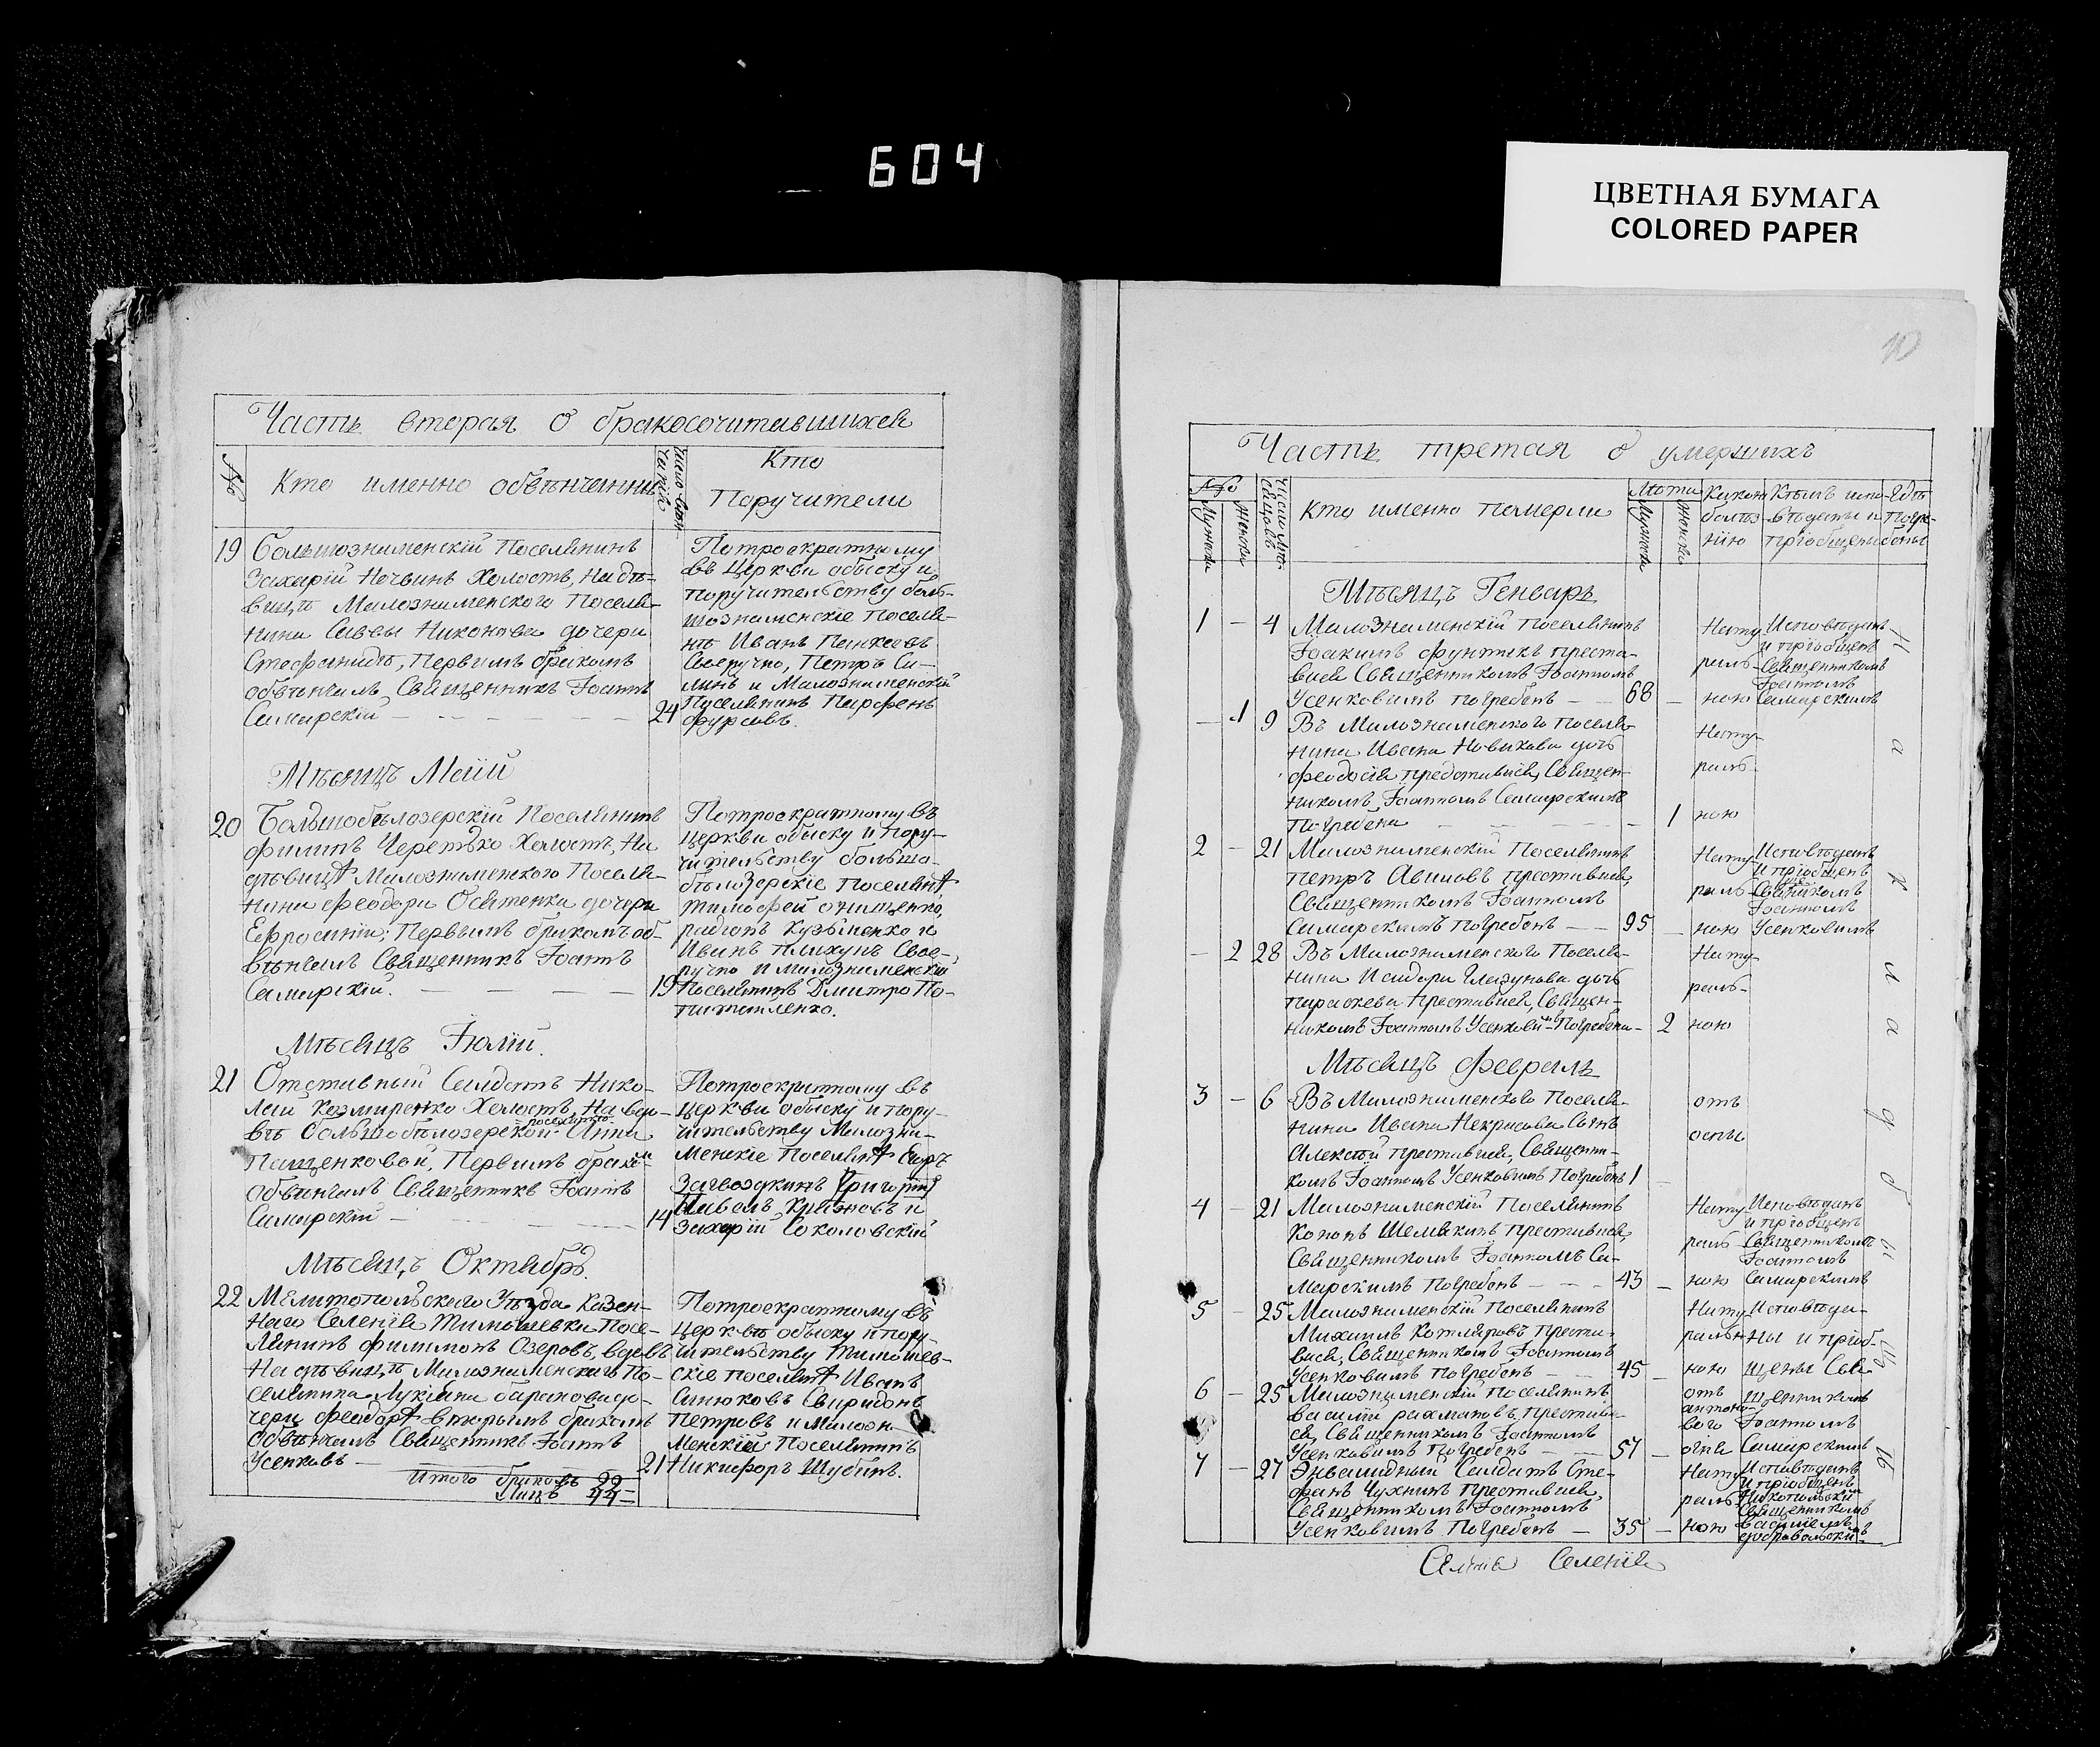 604
ЦВЕТНАЯ БУМАГА
COLORED PAPER
10
Часть вторая о бракосочитавшихся
№
Кто именно обвѣнчанны
Кто
Поручители
19 Большознаменскій Поселянинъ
Захарій Ночвинъ Холостъ, На дѣ-
вицѣ Малознаменского Поселя-
нина Саввы Никонова дочери
Стефанидѣ, Первымъ бракомъ
обвѣнчалъ Священникъ Іоаннъ
Самарскій 24
Потроекратному
въ Церкви обыску и
поручительству боль-
шознаменскіе Поселя-
нѣ Иванъ
Своеручно, Петръ Си-
линъ и Малознаменскій
Поселянинъ Парфенъ
фурсовъ.
Мѣсяцъ Маій
20 Большобѣлозерскій Поселянинъ
филипъ Черетько Холостъ, На
дѣвицѣ Малознаменского Поселя-
нина феодора Осятенка дочери
Ефросиніи; Первымъ бракомъ об-
вѣнчалъ Священникъ Іоаннъ
Самарскій. 19
Потроекратному въ
церкви обыску и пору-
чительству больша-
бѣлозерскіе Поселянѣ
тимофей онищенко,
радіонъ Кузьменко и
Иванъ плихунъ Свое-
ручно И малознаменскій
Поселянинъ Дмитро По-
Мѣсяцъ Іюлій.
21 Отставный Салдатъ Нико-
лай Казмиренко Холостъ, На вдо-
вѣ большобѣлозерской поселянкѣ Анна
Пащенковой, Первымъ бракомъ
обвѣнчалъ Священникъ Іоаннъ
Самарскій 14
Потроекратному въ
церкви обыску и пору-
чительству Малозна-
менскіе Поселянѣ Егоръ
Загвоздкинъ Григорій
Павелъ Крыжовъ и
Захарій Соколовскій
Мѣсяцъ Октябрь.
22 Мелитопольскаго Уѣзда Казен-
наго Селенія Тимошевки Посе-
лянинъ филимонъ Озеровъ, вдовъ
На дѣвицѣ Малознаменскаго По-
селянина Лукіана баранова до-
чери феодорѣ вторымъ бракомъ
Обвѣнчалъ Священникъ Іоаннъ
Усенковъ 21
Потроекратному въ
церквѣ обыску и пору-
чительству Тимошев-
скіе поселянѣ Иванъ
Синюковъ Свиридонъ
Петровъ и Малозн-
менскій Поселянинъ
Никифоръ Шубинъ.
Итого браковъ 22
Лицъ 44
Часть третая о умершихъ
№
Мужеска
Женска
Кто именно померли
Лѣта
Мужеска
Женска
Какою
болѣз-
нію
Кѣмъ испо-
вѣданы и
пріобщены
Гдѣ
Погре-
бены
Мѣсяцъ Генварь
1 - 4 Малознаменскій Поселянинъ
Іоакимъ фунтикъ преста-
вися Священникомъ Іоанномъ
Усенковымъ погребенъ 68 -
Нату-
раль-
ною
Исповѣданъ
и пріобщенъ
Священникомъ
Іоанномъ
Самарскимъ
- 1 9 Въ Малознаменского Поселя-
нина Ивана Новикова дочь
феодосія представися, Священ-
никомъ Іоанномъ Самарскимъ
Погребена 1
Нату-
раль-
ною
2 - 21 Малознаменскій Поселянинъ
петръ Авиловъ преставися,
Священникомъ Іоанномъ
Самарскимъ Погребенъ 95 -
Нату-
раль-
ною
Исповѣданъ
и пріобщенъ
Священникомъ
Іоанномъ
Усенковымъ
- 2 28 Въ Малознаменского Поселя-
нина Исидора Глазунова дочь
параскева преставися, Священ-
никомъ Іоанномъ Усенковымъ Погребена - 2
Нату-
раль-
ною
Мѣсяцъ февраль
3 - 6 Въ Малознаменского Поселя-
нина Ивана Некрасова Сынъ
Алексѣй преставися, Священни-
комъ Іоанномъ Усенковымъ Погребенъ 1 -
отъ
оспы
4 - 21 Малознаменскій Поселянинъ
Кононъ Шелякинъ преставися,
Священникомъ Іоанномъ Са-
марскимъ Погребенъ 43 -
Нату-
раль-
ною
Исповѣданъ
и пріобщенъ
Священникомъ
Іоанномъ
Самарскимъ
5 - 25 Малознаменскій Поселянинъ
Михаилъ Котляровъ Преста-
вися, Священникомъ Іоанномъ
Усенковымъ Погребенъ 45 -
Нату-
раль-
ною
Исповѣда-
ны и пріоб-
щены Свя-
6 - 25 Малознаменскій поселянинъ
василій рахмановъ, преставил-
ся, Священникомъ Іоанномъ
Усенковымъ Погребенъ 57 -
отъ
антоно-
вого
огня
щенникомъ
Іоанномъ
Самарскимъ
7 - 27 Энвалидный Салдатъ Сте-
фанъ Чухнинъ Преставися
Священникомъ Іоанномъ
Усенковымъ Погребенъ - 35 -
Нату-
раль-
ною
Исповѣданъ
и пріобщенъ
Никопольскимъ
Священникомъ
Василіемъ
добровольскимъ
На кладбищѣ
Селенія